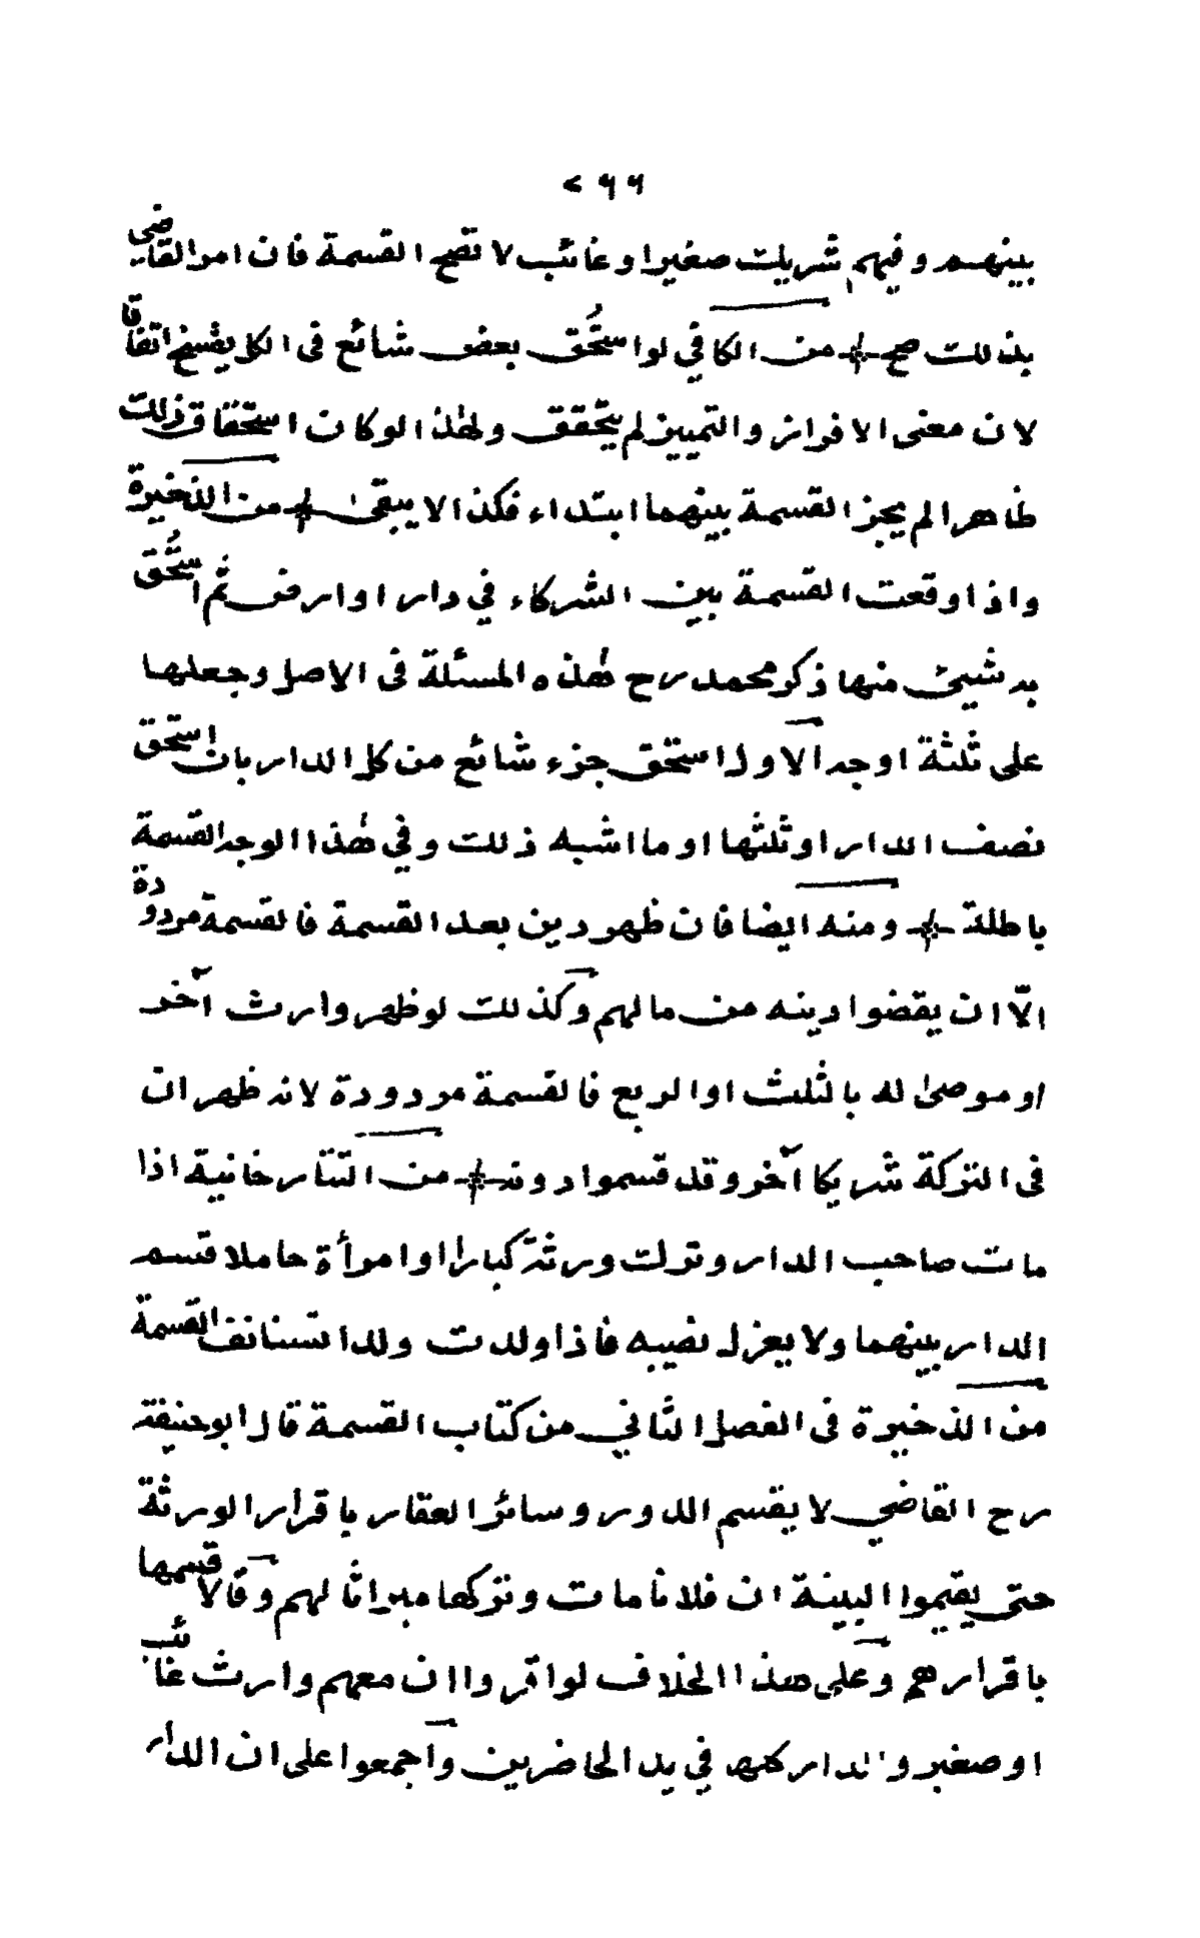 ٢٦٦
بينهم وفيهم شريك صغيرا وغائب لا تصح القسمة فان امر القاضى
بذلك صح من الكافي لو استُحق بعض شائع فى الكل يفسخ اتفاقا
لان معنى الافراز والتمييز لم يتحقق ولهذا لو كان استحقاق ذلك
ظاهرا لم يجز القسمة بينهما ابتداء فكذا لا يبقى من الذخيرة
واذا وقعت القسمة بين الشركاء في دار او ارض ثم استُحق
به شيئ منها ذكر محمد رح هذه المسئلة فى الاصل وجعلها
على ثلثة اوجه الاول استحق جزء شائع من كل الدار بان استحق
نصف الدار او ثلثها او ما اشبه ذلك وفي هذا الوجه القسمة
باطلة ومنه ايضا فان ظهر دين بعد القسمة فالقسمة مردودة
الّا ان يقضوا دينه من مالهم وكذلك لو ظهر وارث آخر
او موصى له بالثلث او الربع فالقسمة مردودة لانه ظهر ان
فى التركة شريكا آخر وقد قسموا دونه من التتارخانية اذا
مات صاحب الدار وترك ورثة كبارا او امرأة حاملا قسم
الدار بينهما ولا يعزل نصيبه فاذا ولدت ولدا تستانف القسمة
من الذخيرة فى الفصل الثاني من كتاب القسمة قال ابو حنيفة
رح القاضي لا يقسم الدور وسائر العقار باقرار الورثة
حتى يقيموا البينة ان فلانا مات وتركها ميراثا لهم وقالا قسمها
باقرارهم وعلى هذا الخلاف لو اقروا ان معهم وارث غائب
او صغير والدار كلها في يد الحاضرين واجمعوا على ان الدار